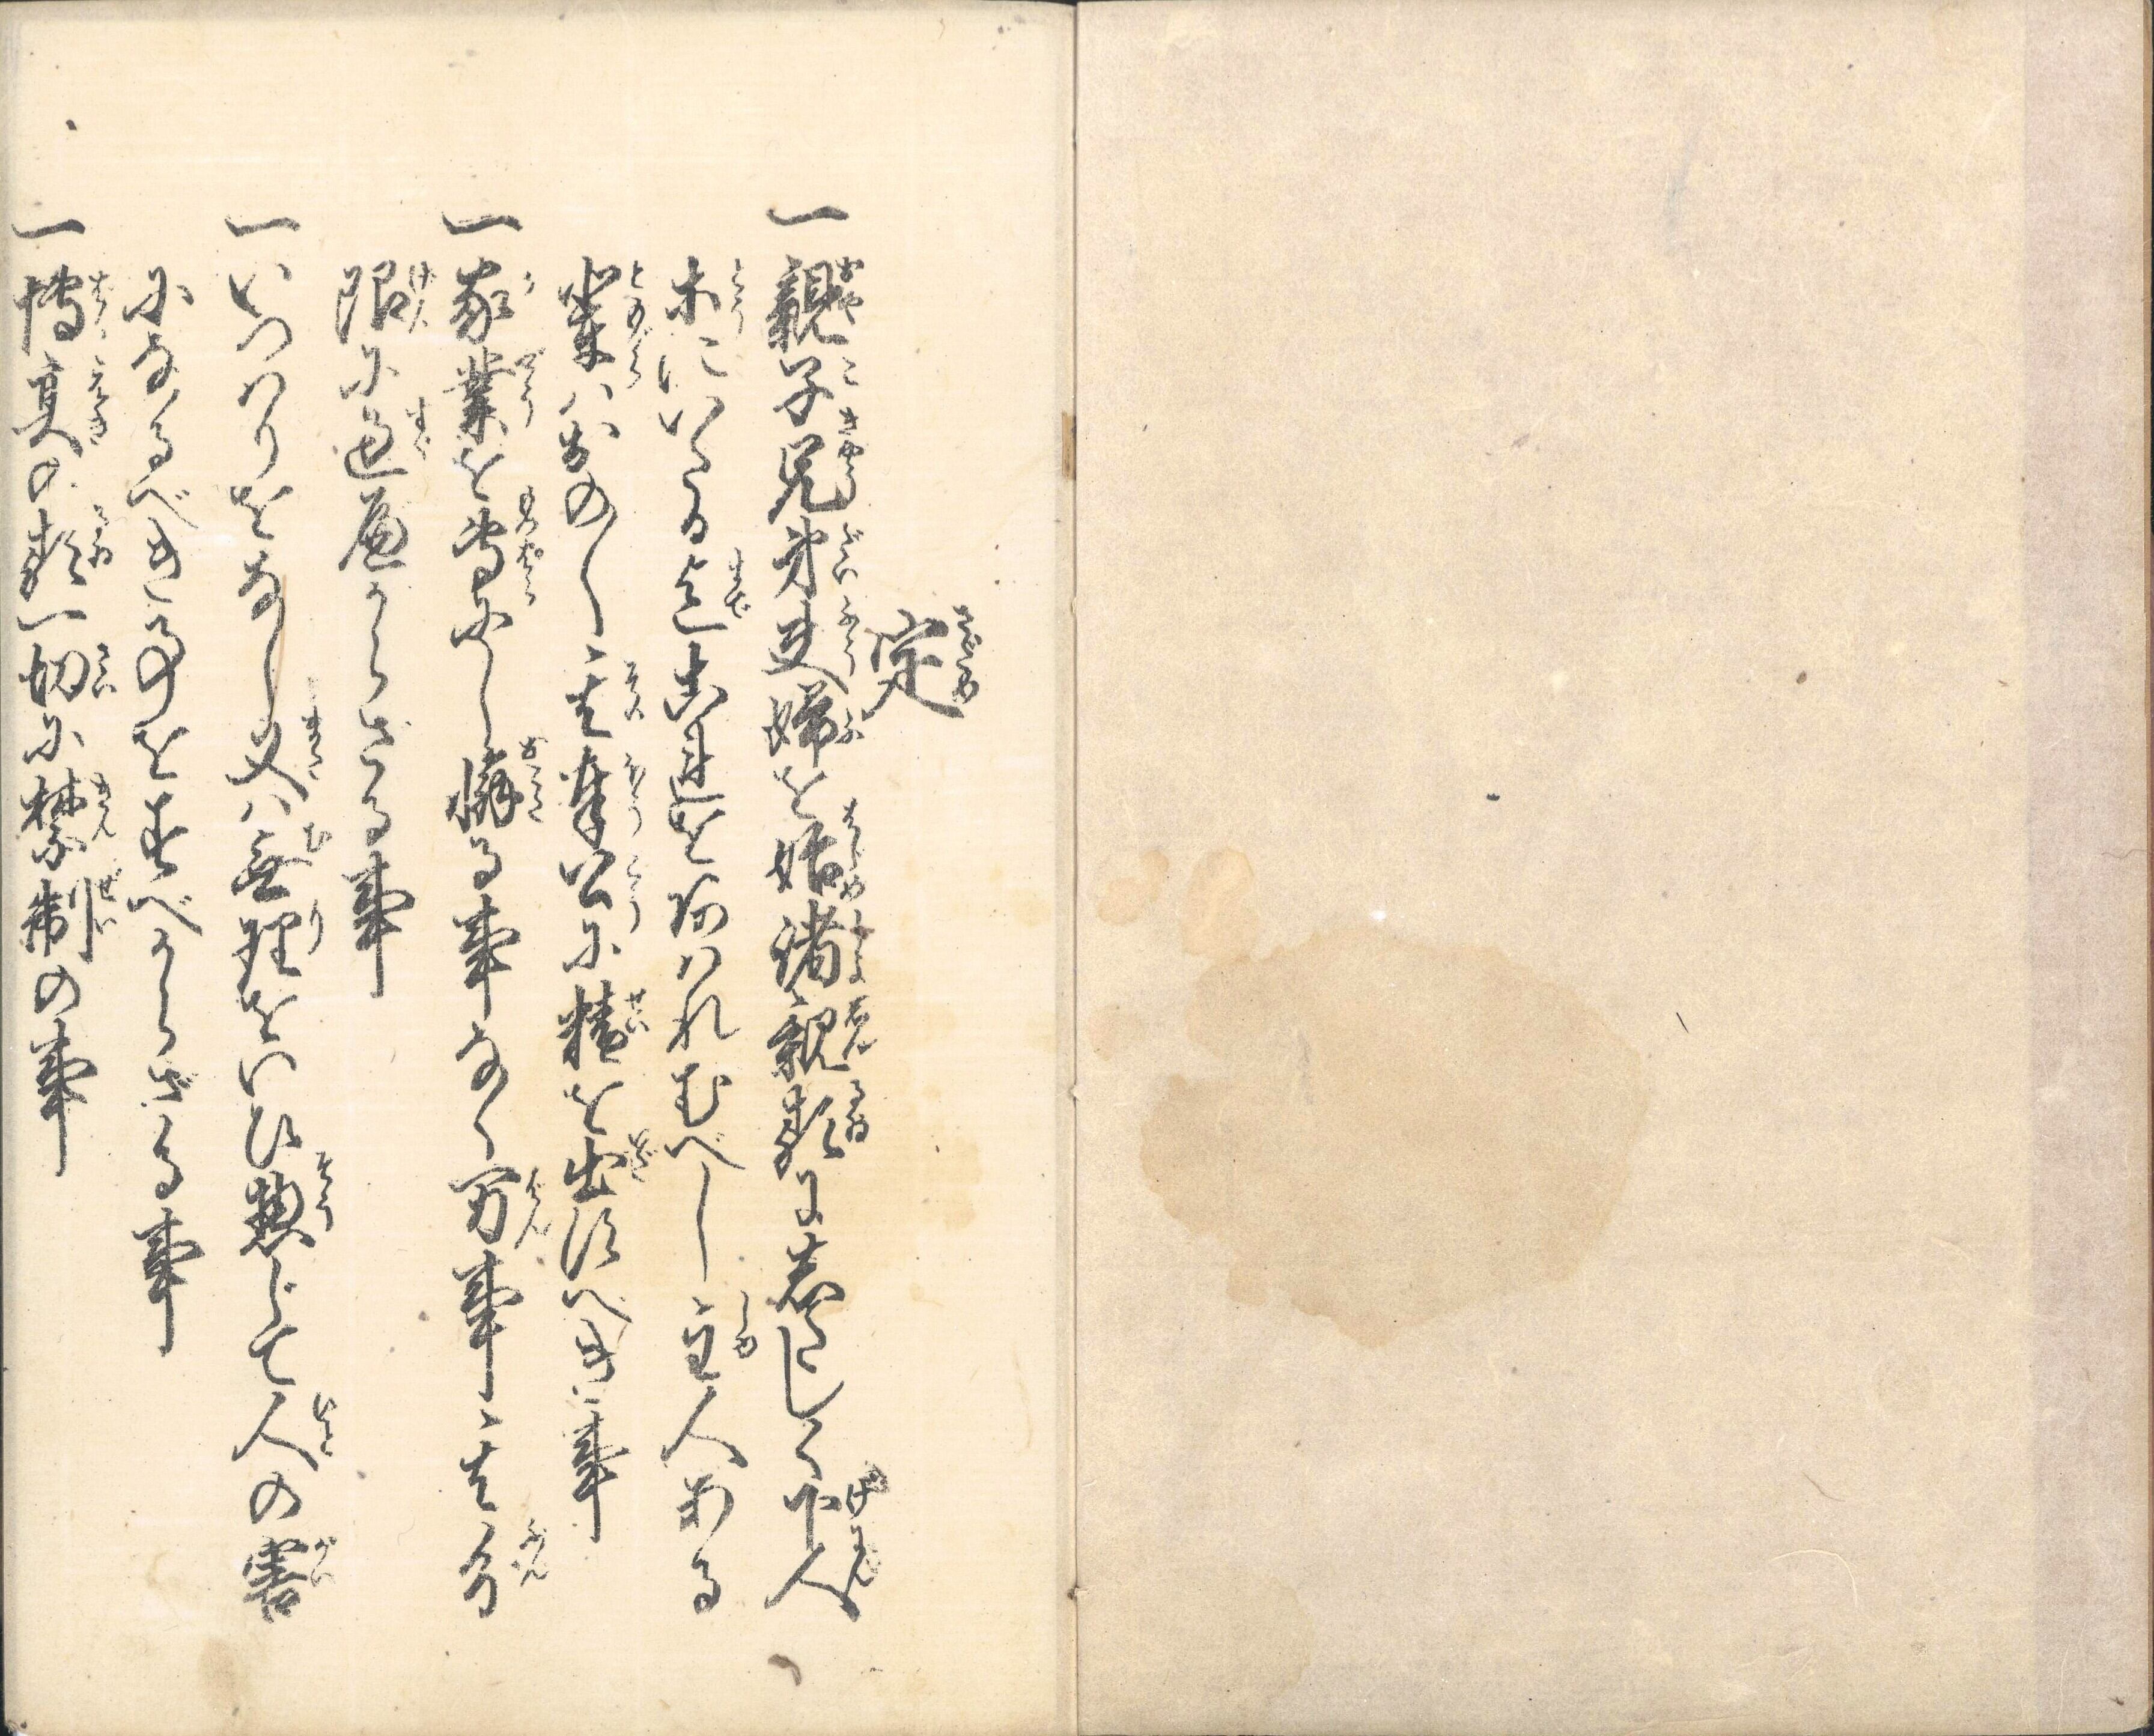 定
一親子兄弟夫婦を始諸親類にしたしく下人
等にいたる迄これをあハれむべし主人ある
輩ハおの〱其奉公に精を出すべき事
一家業を専にし懈る事なく万事其分
限に過べからざる事
一いつハりをなし又ハ無理をいひ惣じて人の害
になるべき事をすべからざる事
一博奕の類一切に禁制の事